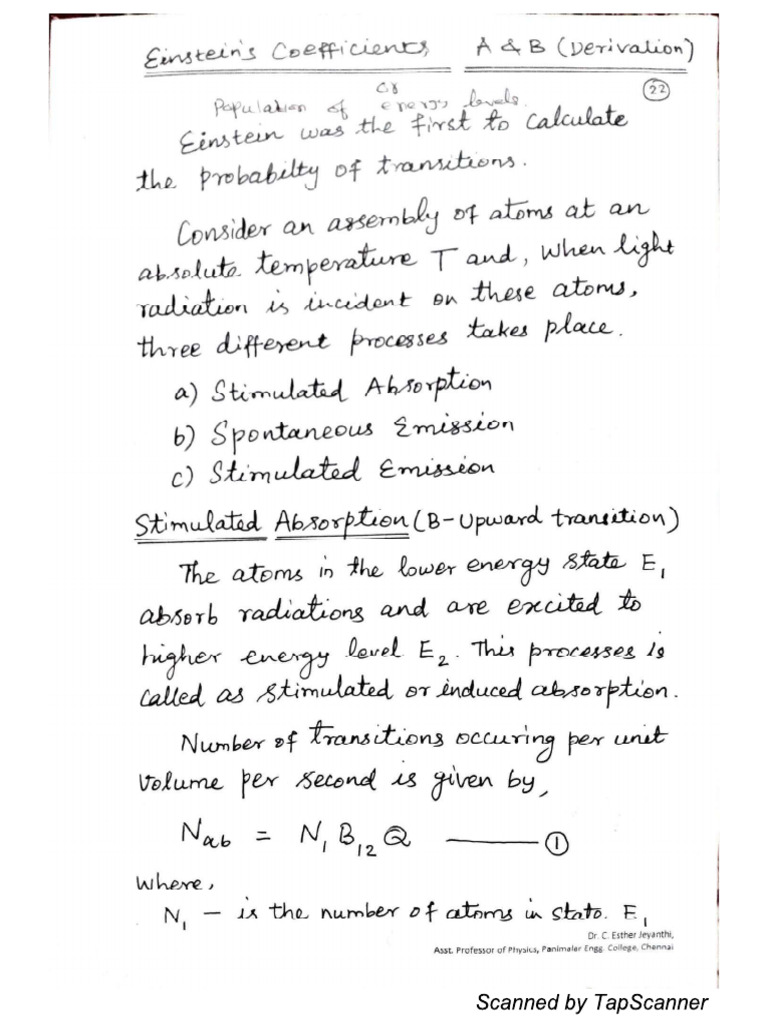 Einstein's Coefficients A & B (Derivation)
or
Population of energy levels.
22
Einstein was the first to calculate
the probabilty of transitions.
Consider an assembly of atoms at an
absolute temperature T and, when light
radiation is incident on these atoms,
three different processes takes place.
a) Stimulated Absorption
b) Spontaneous Emission
c) Stimulated Emission
Stimulated Absorption (B-Upward transition)
The atoms in the lower energy state E₁
absorb radiations and are excited to
higher energy level E₂. This processes is
called as stimulated or induced absorption.
Number of transitions occuring per unit
volume per second is given by,
Nab = N₁ B₁₂ Q —— ①
where,
N₁ – is the number of atoms in state E₁
Dr. C. Esther Jeyanthi,
Asst. Professor of Physics, Panimalar Engg. College, Chennai
Scanned by TapScanner